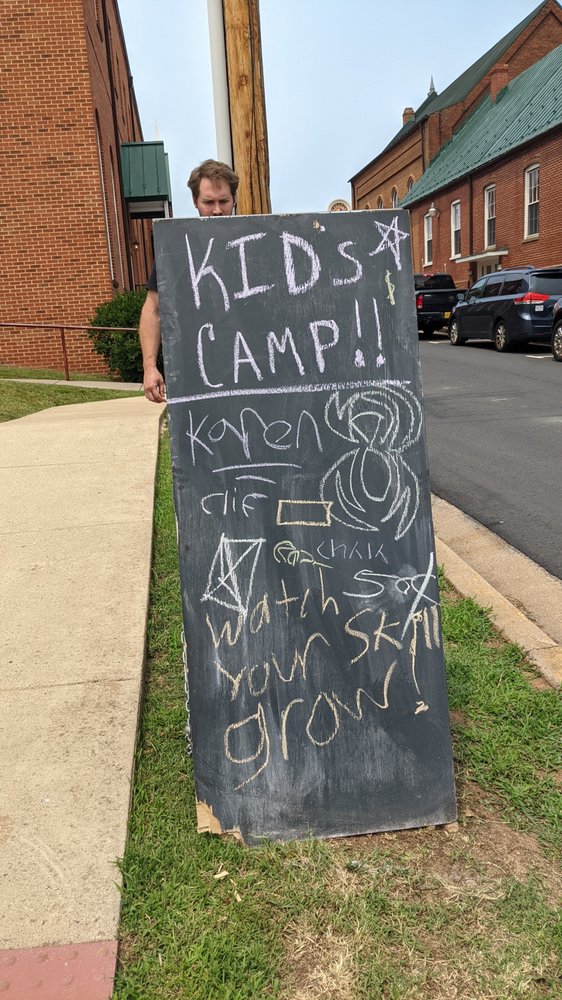 KID's
CAMP!!
Karen
die
chkk
Sox
watch
your skill
grow